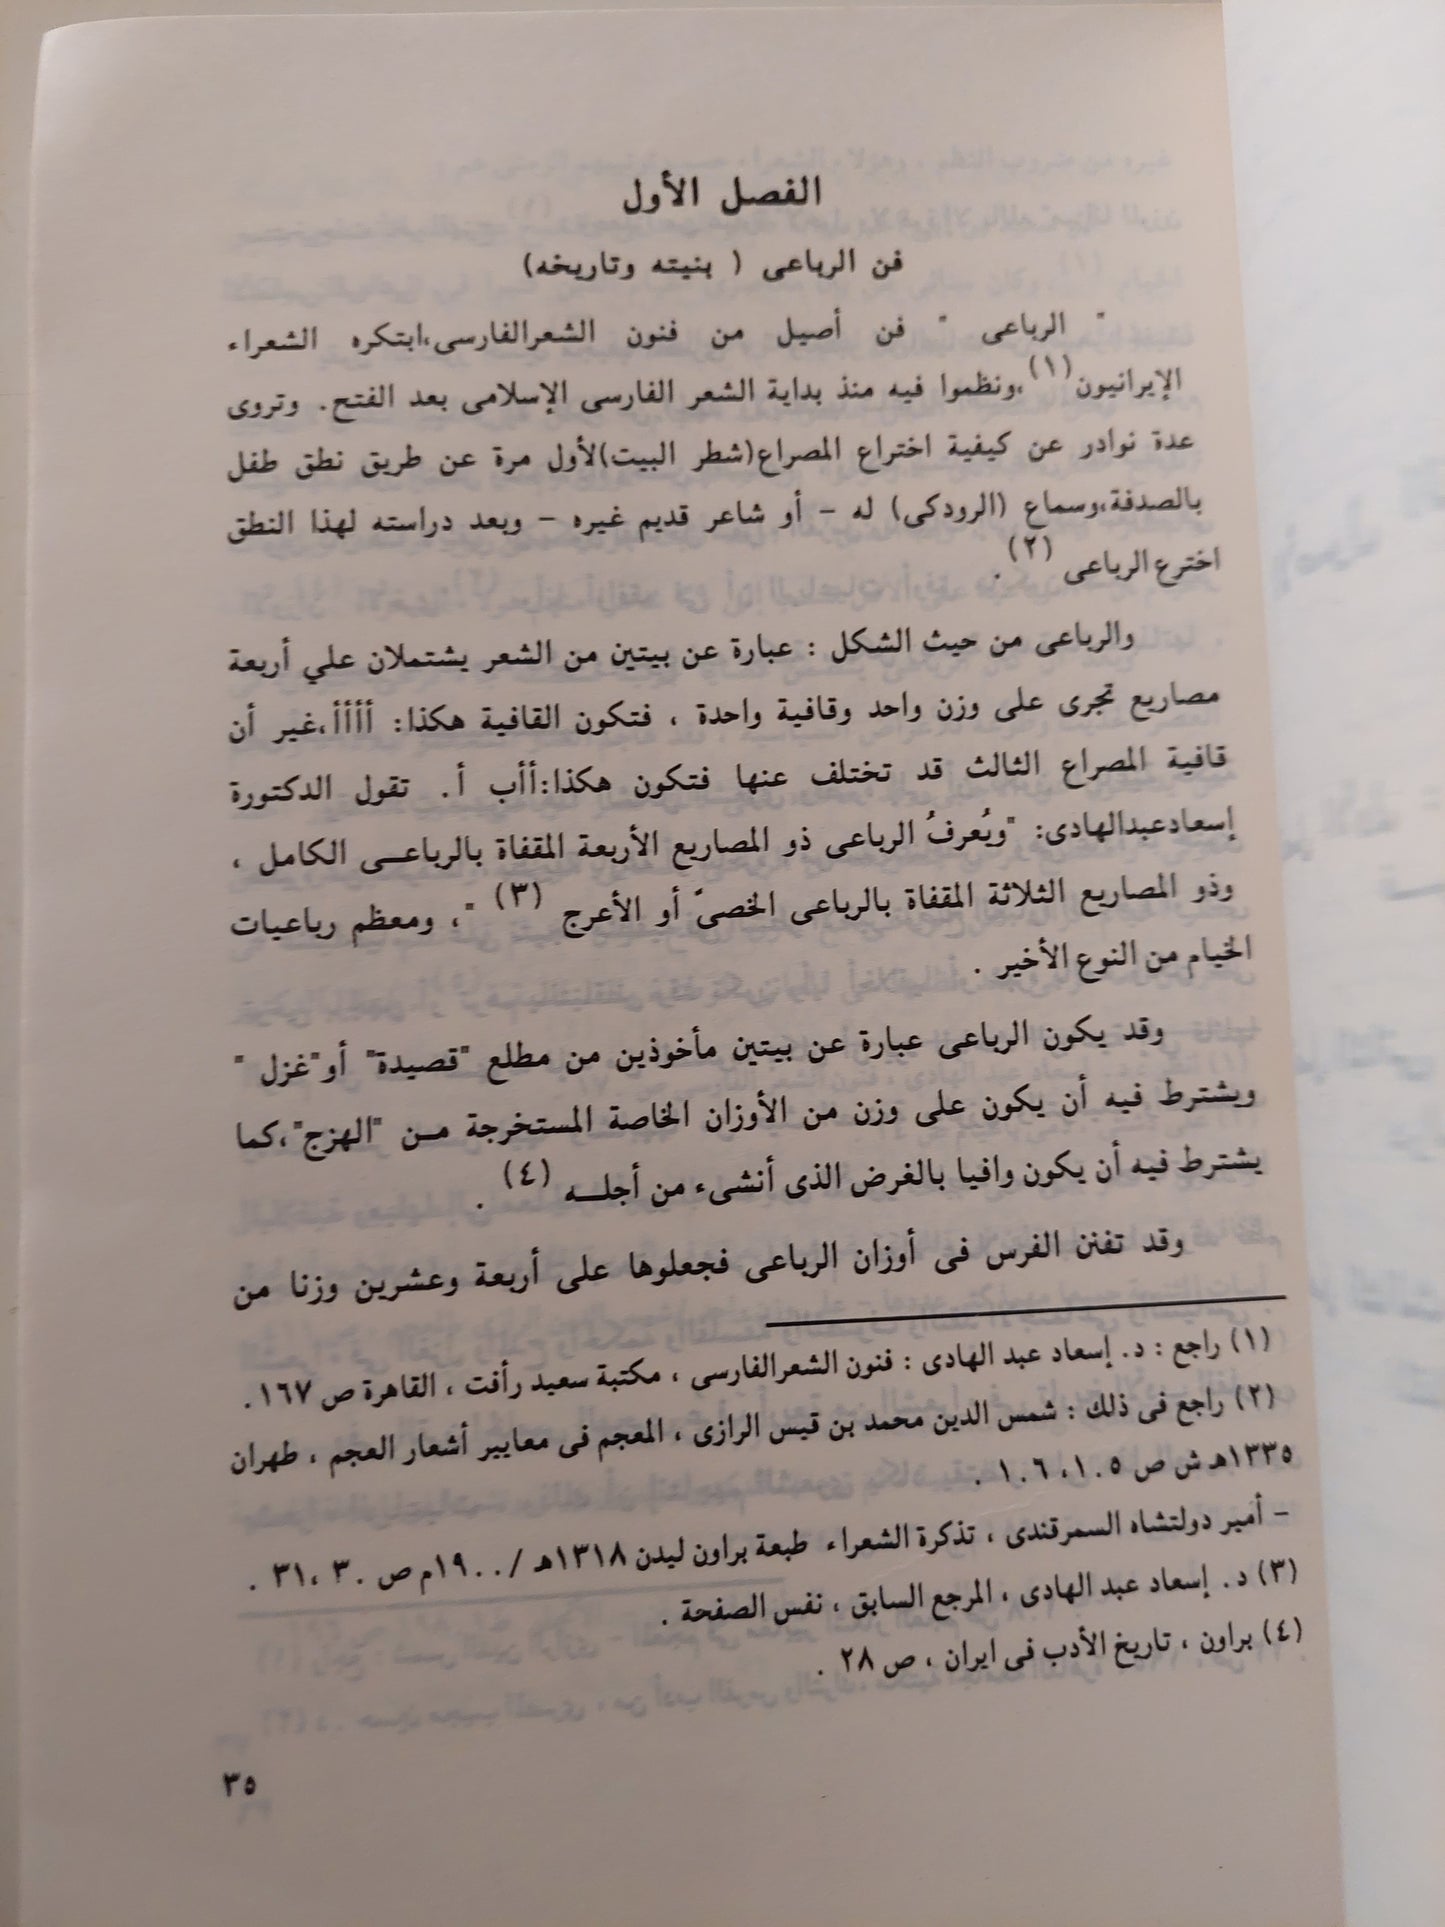 الفصل الأول
فن الرباعى ( بنيته وتاريخه)
" الرباعى " فن أصيل من فنون الشعرالفارسى،ابتكره الشعراء
الإيرانيون(١)،ونظموا فيه منذ بداية الشعر الفارسى الإسلامى بعد الفتح. وتروى
عدة نوادر عن كيفية اختراع المصراع(شطر البيت)لأول مرة عن طريق نطق طفل
بالصدفة،وسماع (الرودكى) له – أو شاعر قديم غيره – وبعد دراسته لهذا النطق
اخترع الرباعى (٢).
والرباعى من حيث الشكل : عبارة عن بيتين من الشعر يشتملان علي أربعة
مصاريع تجرى على وزن واحد وقافية واحدة ، فتكون القافية هكذا: أأأأ،غير أن
قافية المصراع الثالث قد تختلف عنها فتكون هكذا:أأب أ. تقول الدكتورة
إسعادعبدالهادى: "ويُعرفُ الرباعى ذو المصاريع الأربعة المقفاة بالرباعــى الكامل ،
وذو المصاريع الثلاثة المقفاة بالرباعى الخصىّ أو الأعرج (٣) "، ومعظم رباعيات
الخيام من النوع الأخير .
وقد يكون الرباعى عبارة عن بيتين مأخوذين من مطلع "قصيدة" أو"غزل "
ويشترط فيه أن يكون على وزن من الأوزان الخاصة المستخرجة مــن "الهزج"،كما
يشترط فيه أن يكون وافيا بالغرض الذى أنشىء من أجلــه (٤) .
وقد تفنن الفرس فى أوزان الرباعى فجعلوها على أربعة وعشرين وزنا من
(١) راجع : د. إسعاد عبد الهادى : فنون الشعرالفارسى ، مكتبة سعيد رأفت ، القاهرة ص ١٦٧.
(٢) راجع فى ذلك : شمس الدين محمد بن قيس الرازى ، المعجم فى معايير أشعار العجم ، طهران
١٣٣٥هـ ش ص ١٠٥، ١٠٦ .
– أمير دولتشاه السمرقندى ، تذكرة الشعراء طبعة براون ليدن ١٣١٨هـ /١٩٠٠م ص ٣٠ ،٣١ .
(٣) د. إسعاد عبد الهادى ، المرجع السابق ، نفس الصفحة .
(٤) براون ، تاريخ الأدب فى ايران ، ص ٢٨ .
٣٥